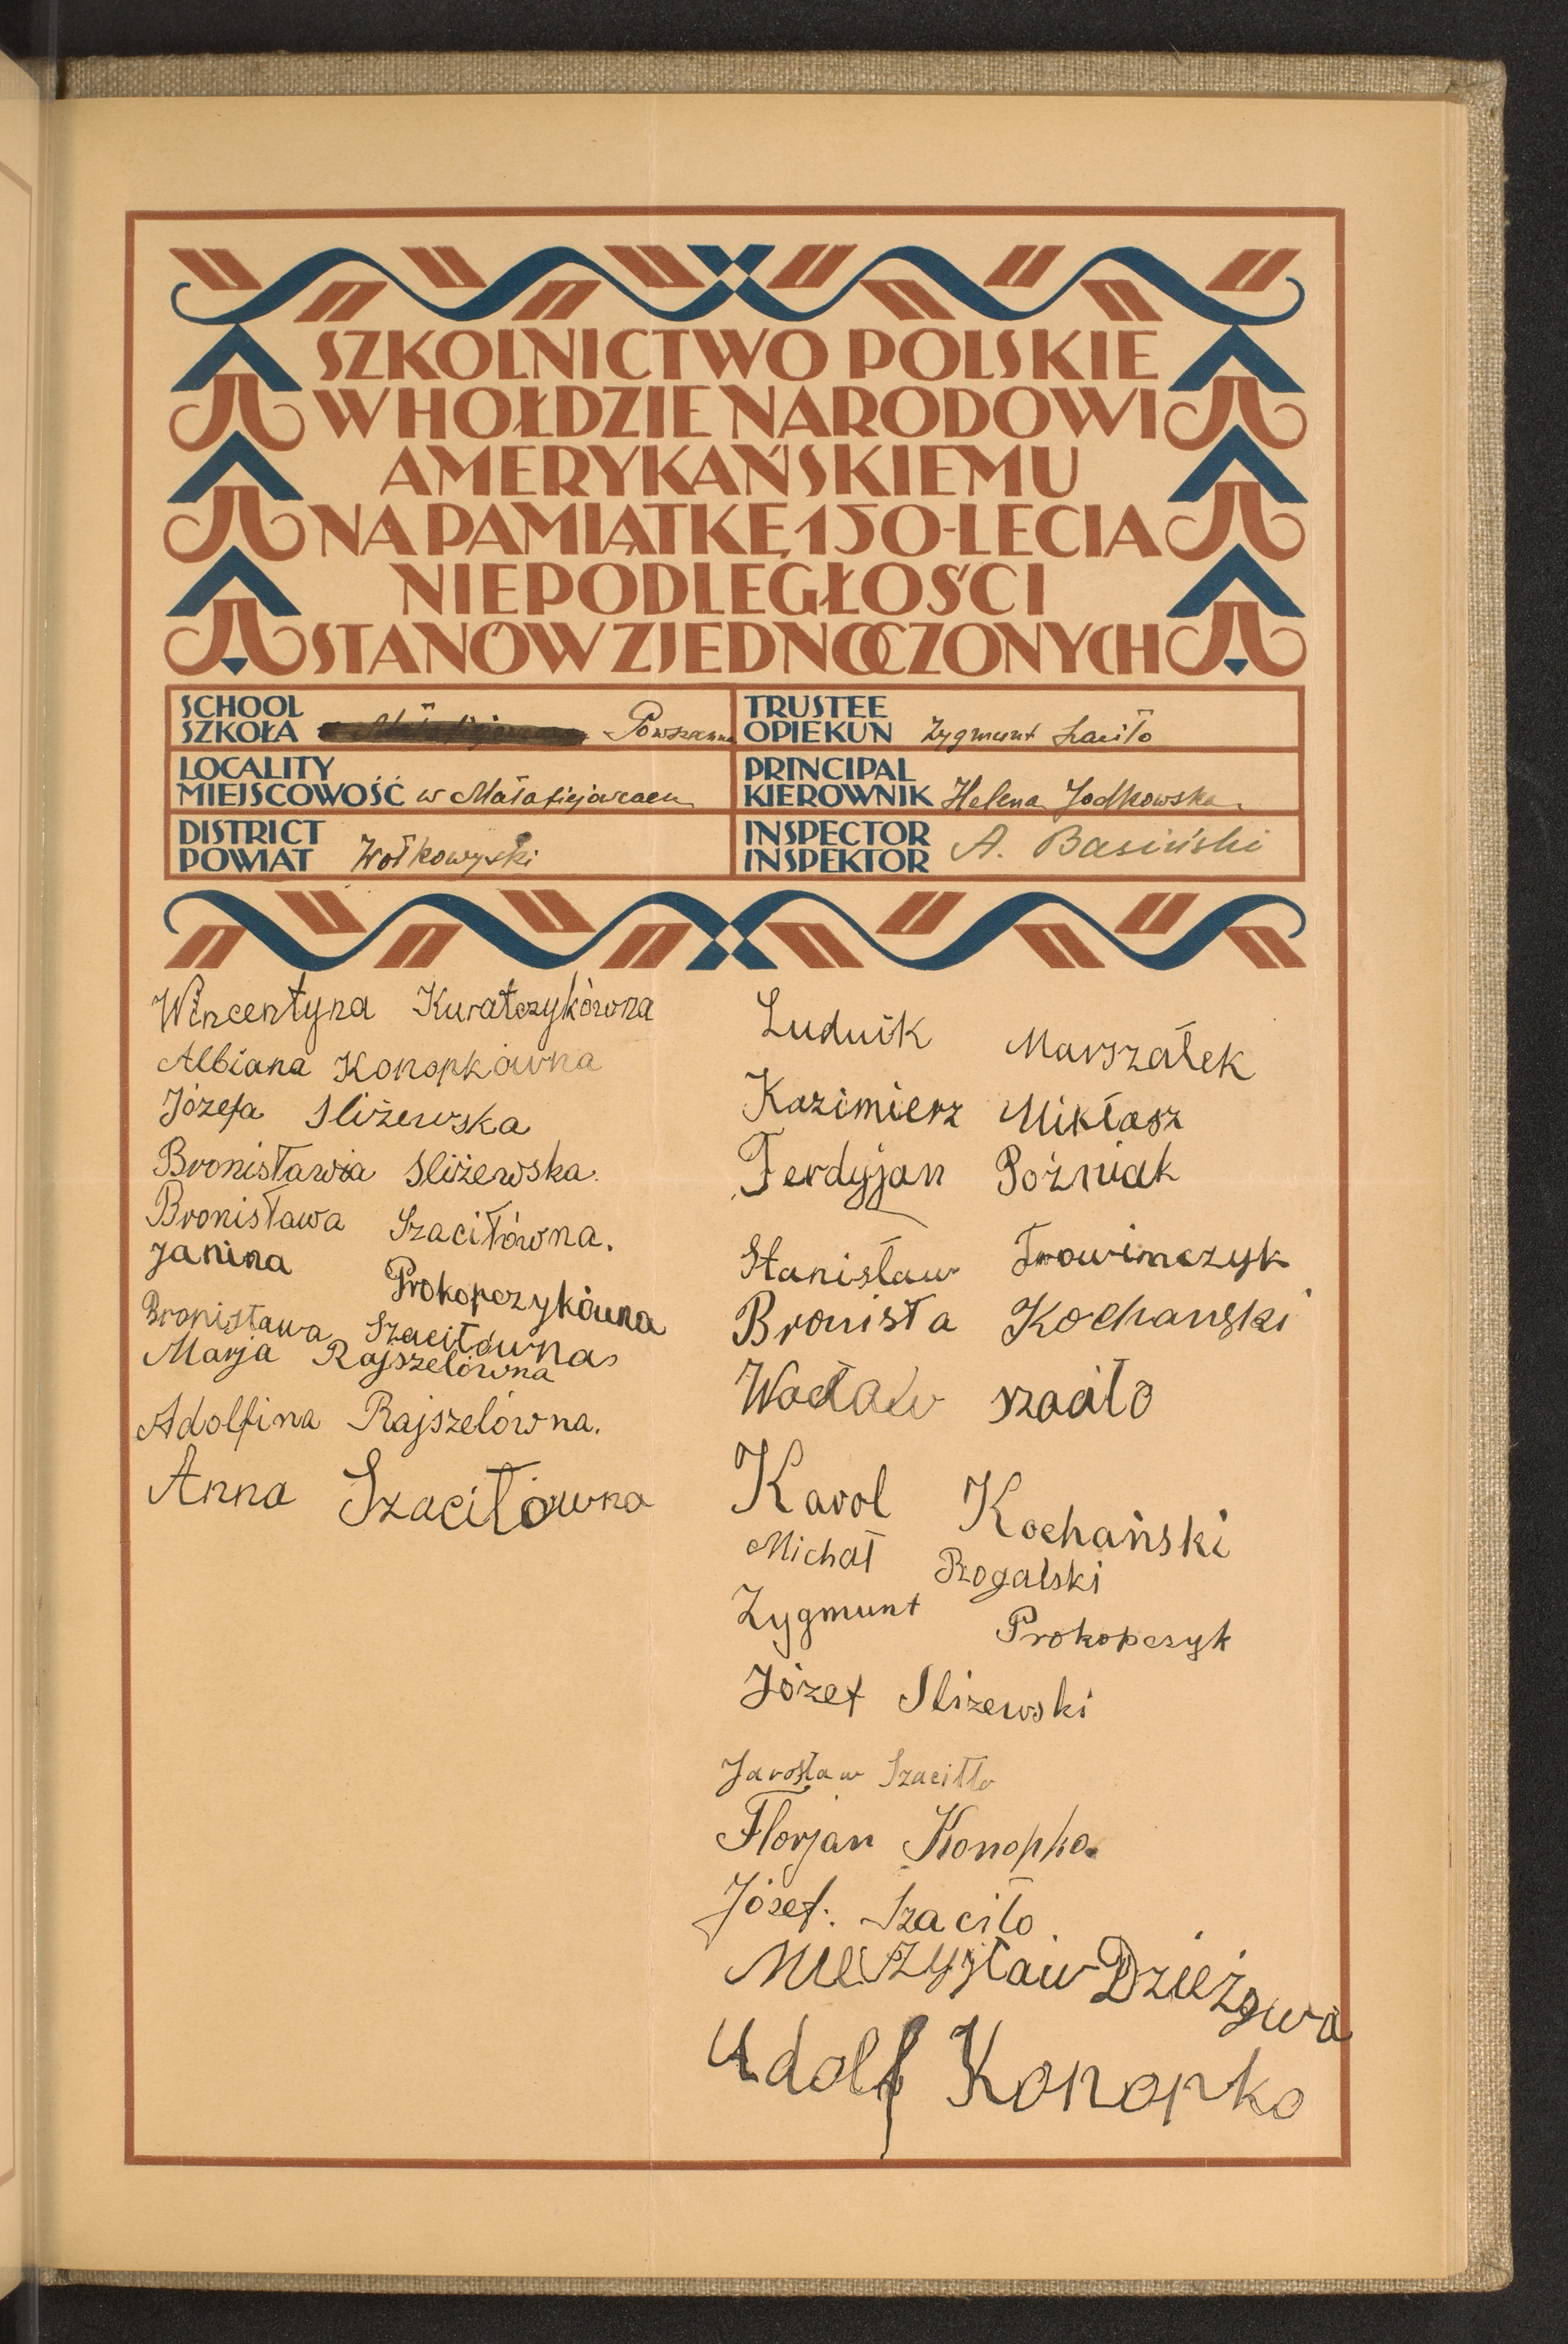 SZKOLNICTWO POLSKIE
W HOŁDZIE NARODOWI
AMERYKAŃSKIEMU
NA PAMIĄTKĘ 150-LECIA
NIEPODLEGŁOŚCI
STANÓW ZJEDNOCZONYCH
SCHOOL
SZKOŁA Powszechna
TRUSTEE
OPIEKUN Zygmunt Szaciło
LOCALITY
MIEJSCOWOŚĆ w
PRINCIPAL
KIEROWNIK Helena Jodkowska
DISTRICT
POWIAT Wołkowyski
INSPECTOR
INSPEKTOR A. Basiński
Wincentyna Kuratczykówna
Albiana Konopkówna
Józefa Sliżewska
Bronisława Sliżewska.
Bronisława Szaciłówna.
Janina Prokopczykówna
Bronisława Szaciłówna
Marja Rajszelówna
Adolfina Rajszelówna.
Anna Szaciłówna
Ludwik Marszałek
Kazimierz Mikłasz
Ferdyjan Poźniak
Stanisław Trowimczyk
Bronisła Kochański
Wacław szaciło
Karol Kochański
Michał Rogalski
Zygmunt Prokopczyk
Józef Sliżewski
Jarosław Szaciłło
Florjan Konopka
Józef. Szaciło
Mieczysław
Adolf Konopko